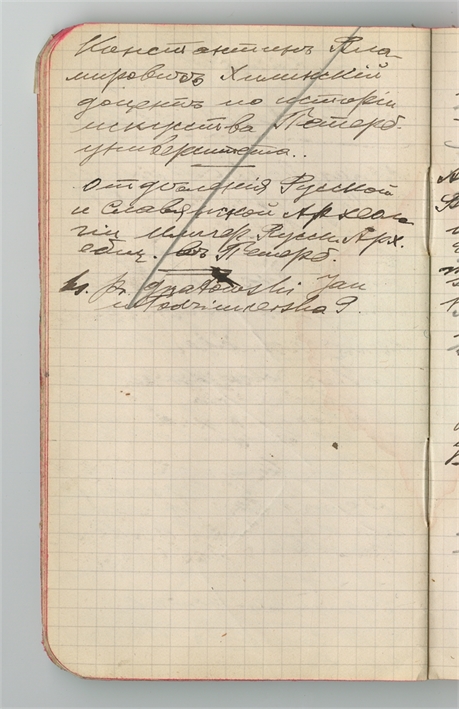 Константинъ Вла-
мировичъ Хилинскій
доцентъ по исторіи
искусства Петерб.
университета..
отдѣленія Русской
и Славянской Археоло
гіи Импер. Русск. Арх.
общ. въ Петерб.
ks. pr. Gnatowski Jan
9.